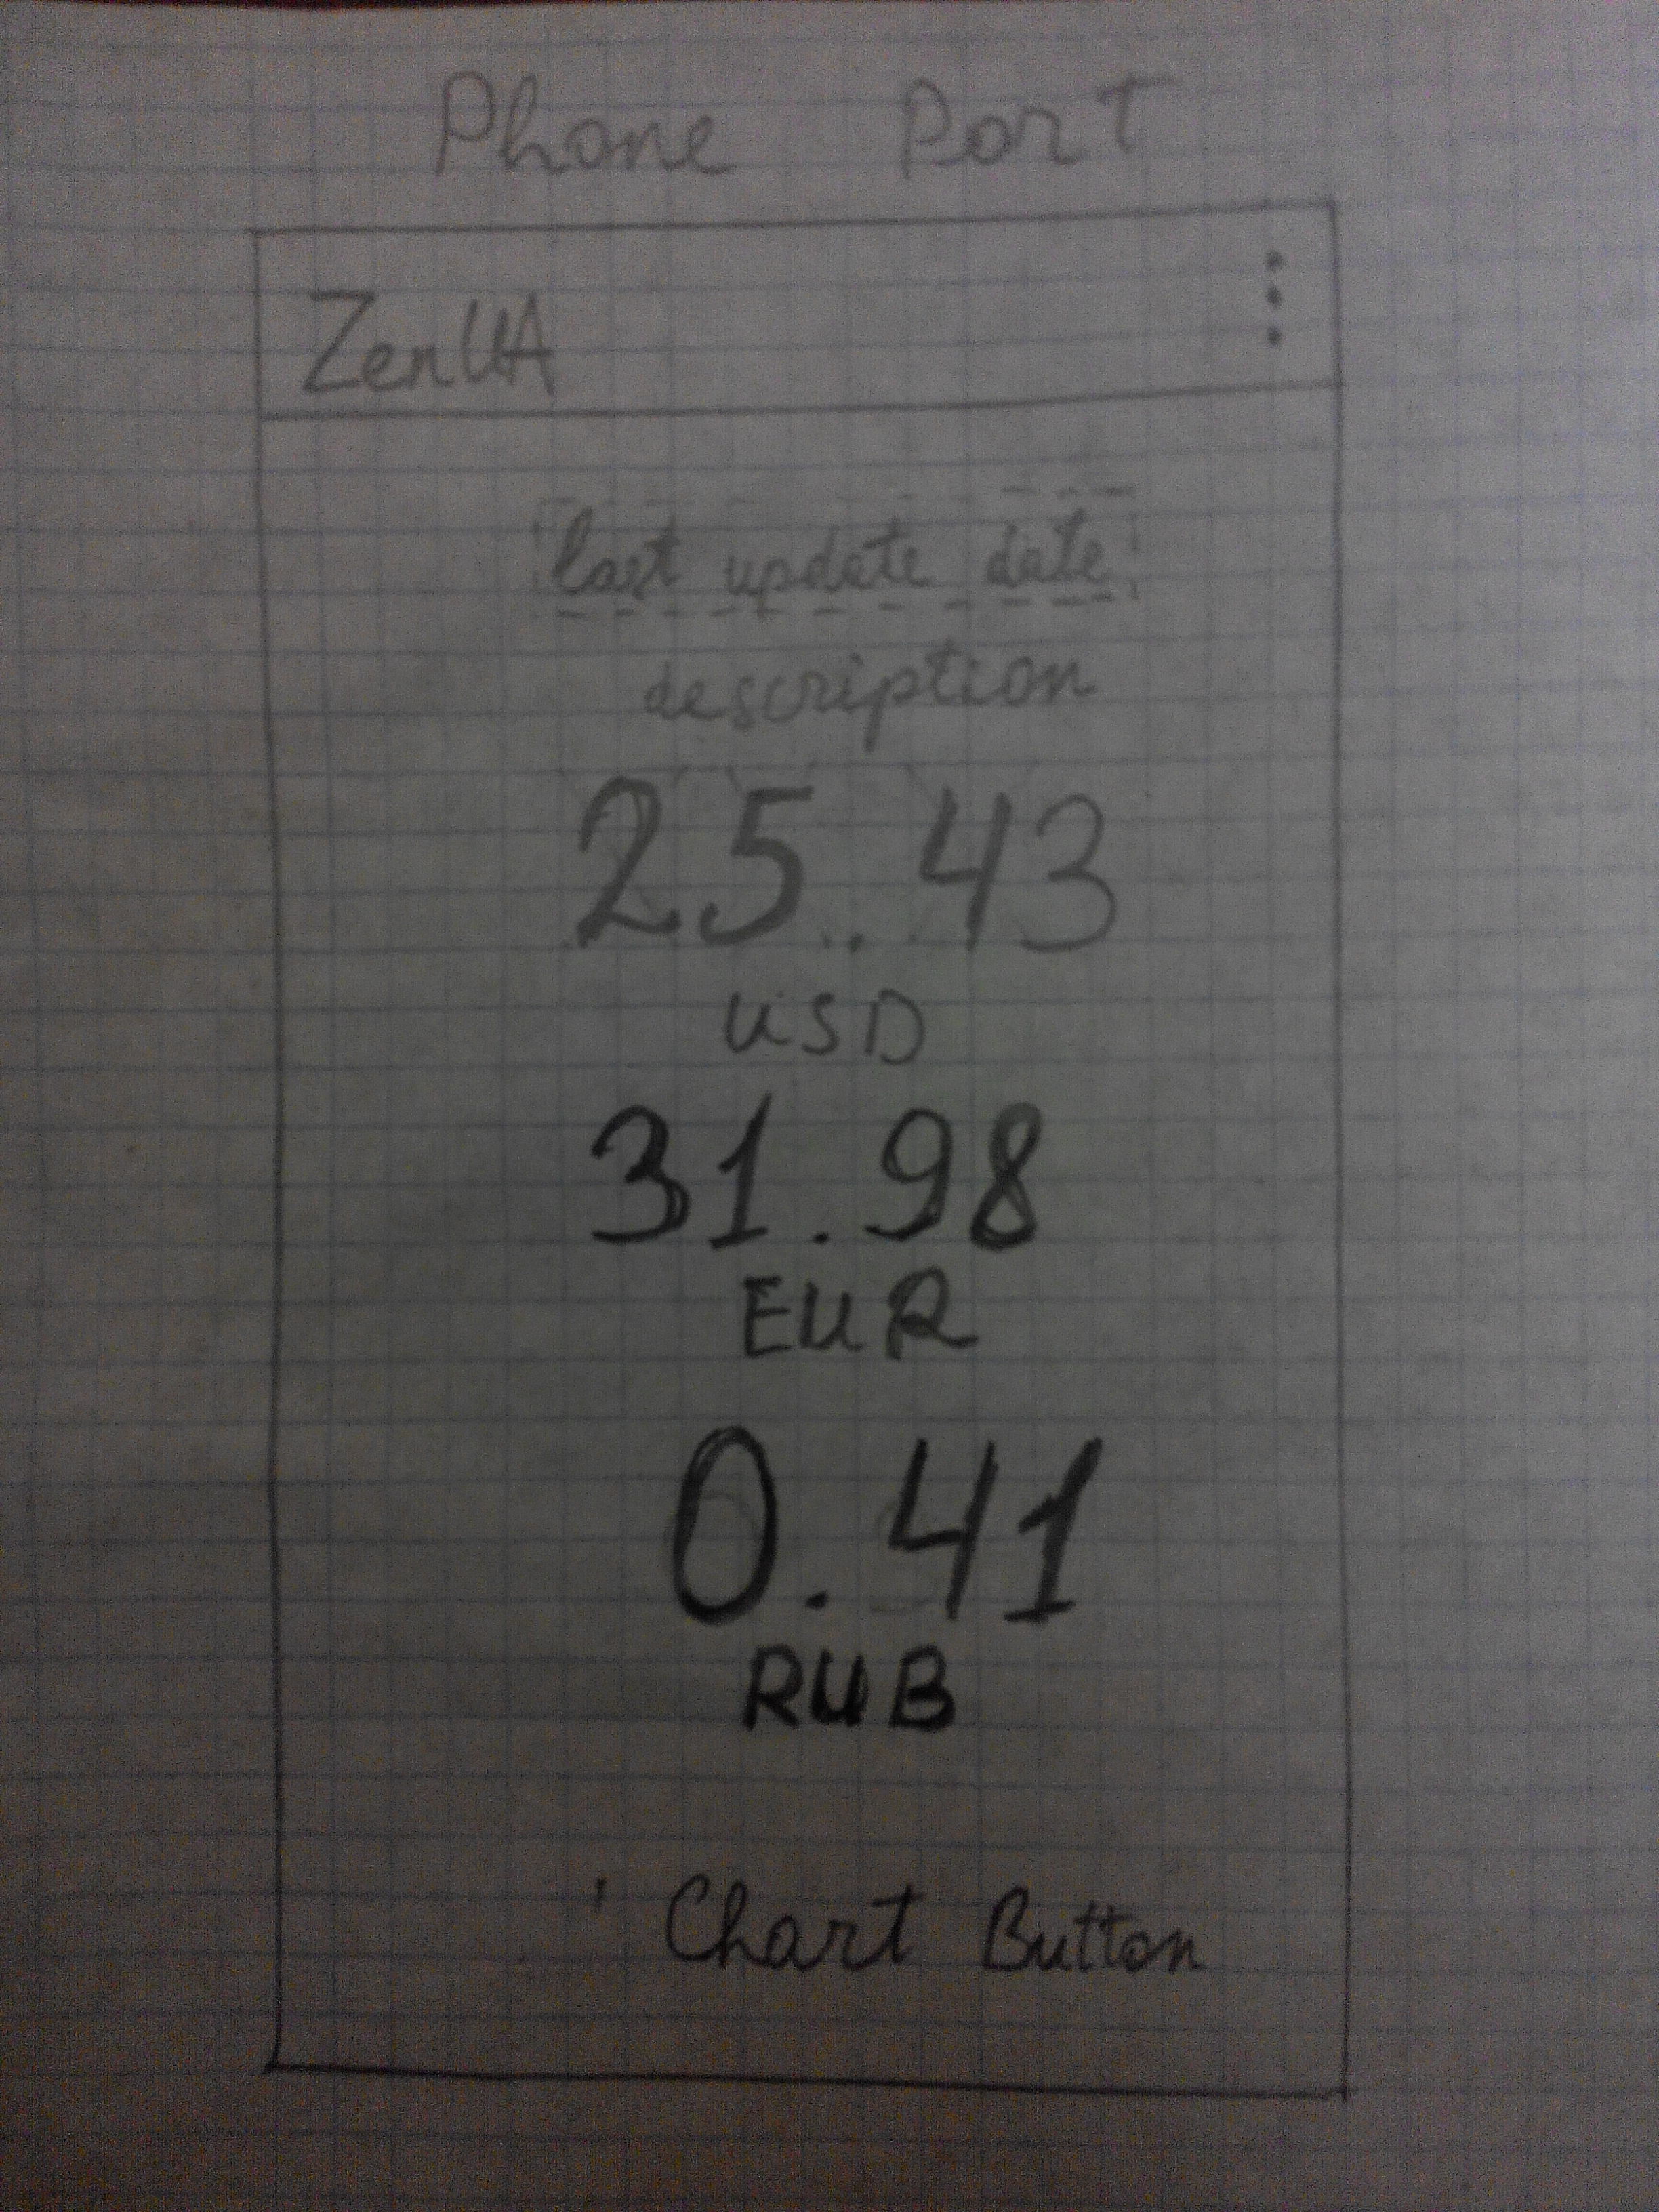 Phone Port
ZenUA
last update date
description
25.43
USD
31.98
EUR
0.41
RUB
Chart Button